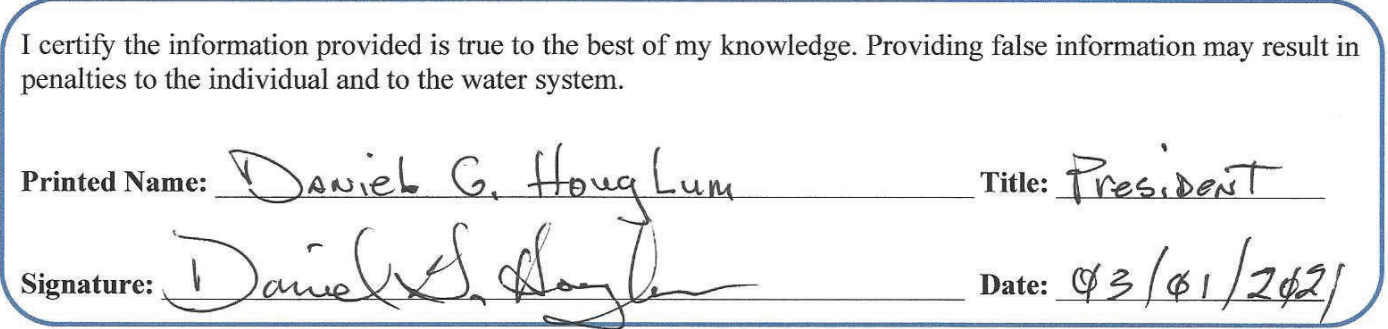 I certify the information provided is true to the best of my knowledge. Providing false information may result in
penalties to the individual and to the water system.
Printed Name: Daniel G. Houglum Title: President
Signature: Daniel G. Houglum Date: 03/01/2021